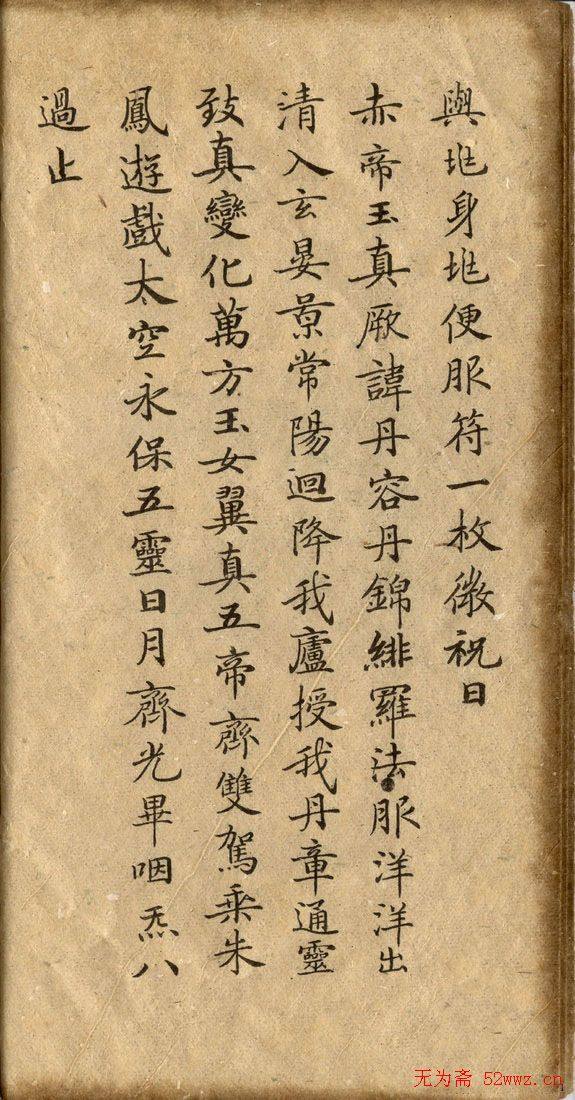 與兆身兆便服符一枚微祝曰
赤帝玉真厥諱丹容丹錦緋羅法服洋洋出
清入玄晏景常陽迴降我廬授我丹章通靈
致真變化萬方玉女翼真五帝齊雙駕乘朱
鳳遊戲太空永保五靈日月齊光畢咽炁八
過止
无为斋 52wwz.cn